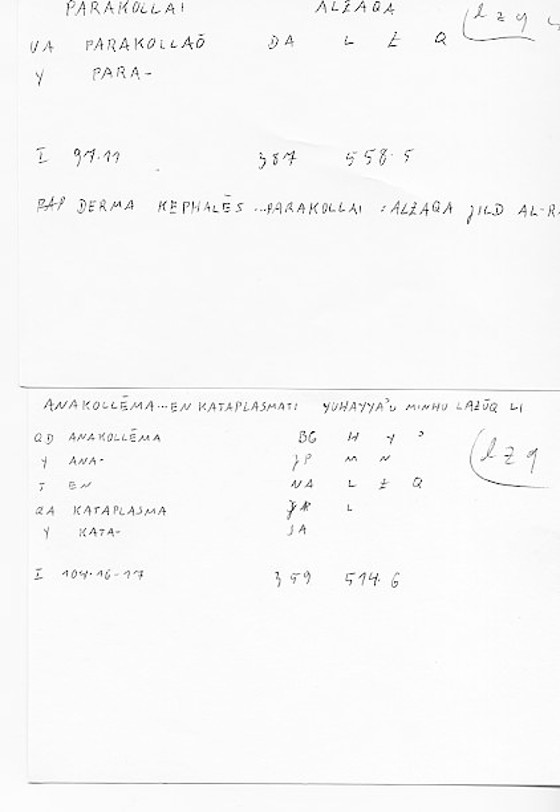 PARAKOLLAI ALŻAQA (lzq
VA PARAKOLLAŌ DA L Ż Q
Y PARA-
I 97.11 387 558.5
PAP DERMA KEPHALĒS ...PARAKOLLAI : ALŻAQA JILD AL-R
ANAKOLLĒMA...EN KATAPLASMATI YUHAYYA'U MINHU LAZŪQ LI
QD ANAKOLLĒMA BG H Y ' (lzq
Y ANA- JP M N
T EN NA L Ż Q
QA KATAPLASMA JK L
Y KATA- JA
I 104.16-17 359 514.6